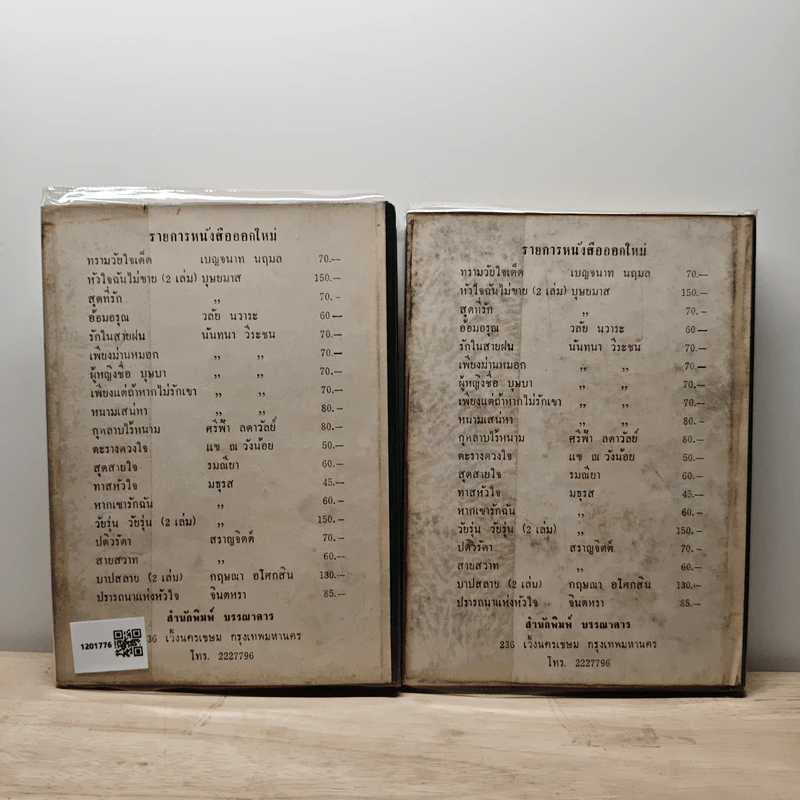 รายการหนังสือออกใหม่
ทรามวัยใจเด็ด เบญจนาท นฤมล 70.—
หัวใจฉันไม่ขาย (2 เล่ม) บุษยมาส 150.—
สุดที่รัก ,, 70.-
อ้อมอรุณ วลัย นวาระ 60—
รักในสายฝน นันทนา วีระชน 70.—
เพียงม่านหมอก ,, ,, 70.—
ผู้หญิงชื่อ บุษบา ,, ,, 70.—
เพียงแต่ถ้าหากไม่รักเขา ,, ,, 70.—
หนามเสน่หา ,, ,, 80.—
กุหลาบไร้หนาม ศรีฟ้า ลดาวัลย์ 80.—
ตะรางดวงใจ แข ณ วังน้อย 50.—
สุดสายใจ รมณียา 60.—
ทาสหัวใจ มธุรส 45.—
หากเขารักฉัน ,, 60.—
วัยรุ่น วัยรุ่น (2 เล่ม) ,, 150.—
ปดิวรัดา สราญจิตต์ 70.—
สายสวาท ,, 60.—
บาปสลาย (2 เล่ม) กฤษณา อโศกสิน 130.—
ปรารถนาแห่งหัวใจ จินตหรา 85.—
สำนักพิมพ์ บรรณาคาร
236 เวิ้งนครเขษม กรุงเทพมหานคร
โทร. 2227796
1201776
รายการหนังสือออกใหม่
ทรามวัยใจเด็ด เบญจนาท นฤมล 70.—
หัวใจฉันไม่ขาย (2 เล่ม) บุษยมาส 150.—
สุดที่รัก ,, 70.—
อ้อมอรุณ วลัย นวาระ 60—
รักในสายฝน นันทนา วีระชน 70.—
เพียงม่านหมอก ,, ,, 70.—
ผู้หญิงชื่อ บุษบา ,, ,, 70.—
เพียงแต่ถ้าหากไม่รักเขา ,, ,, 70.—
หนามเสน่หา ,, ,, 80.—
กุหลาบไร้หนาม ศรีฟ้า ลดาวัลย์ 80.—
ตะรางดวงใจ แข ณ วังน้อย 50.—
สุดสายใจ รมณียา 60.—
ทาสหัวใจ มธุรส 45.—
หากเขารักฉัน ,, 60.—
วัยรุ่น วัยรุ่น (2 เล่ม) ,, 150.—
ปดิวรัดา สราญจิตต์ 70.—
สายสวาท ,, 60.—
บาปสลาย (2 เล่ม) กฤษณา อโศกสิน 130.—
ปรารถนาแห่งหัวใจ จินตหรา 85.—
สำนักพิมพ์ บรรณาคาร
236 เวิ้งนครเขษม กรุงเทพมหานคร
โทร. 2227796